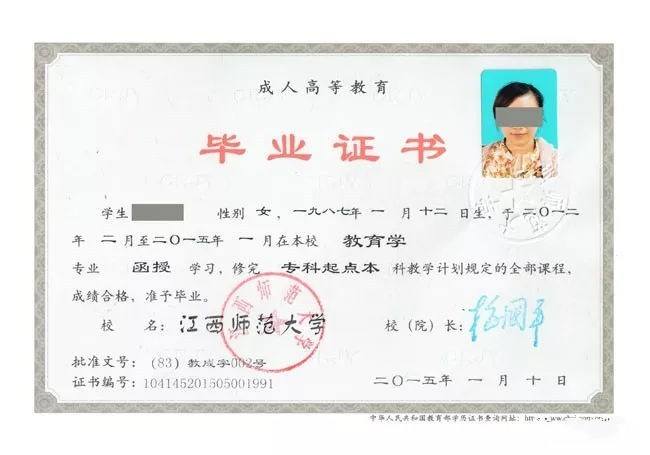 成人高等教育
毕业证书
学生 性别 女，一九八七年 一 月 十二 日生，于 二〇一二
年 二 月至 二〇一五年 一 月在本校 教育学
专业 函授 学习，修完 专科起点本 科教学计划规定的全部课程，
成绩合格，准予毕业。
校 名：江西师范大学 校（院）长：
江西师范大学
批准文号：(83) 教成字002号
证书编号：104145201505001991 二〇一五年 一 月 十 日
中华人民共和国教育部学历证书查询网址：